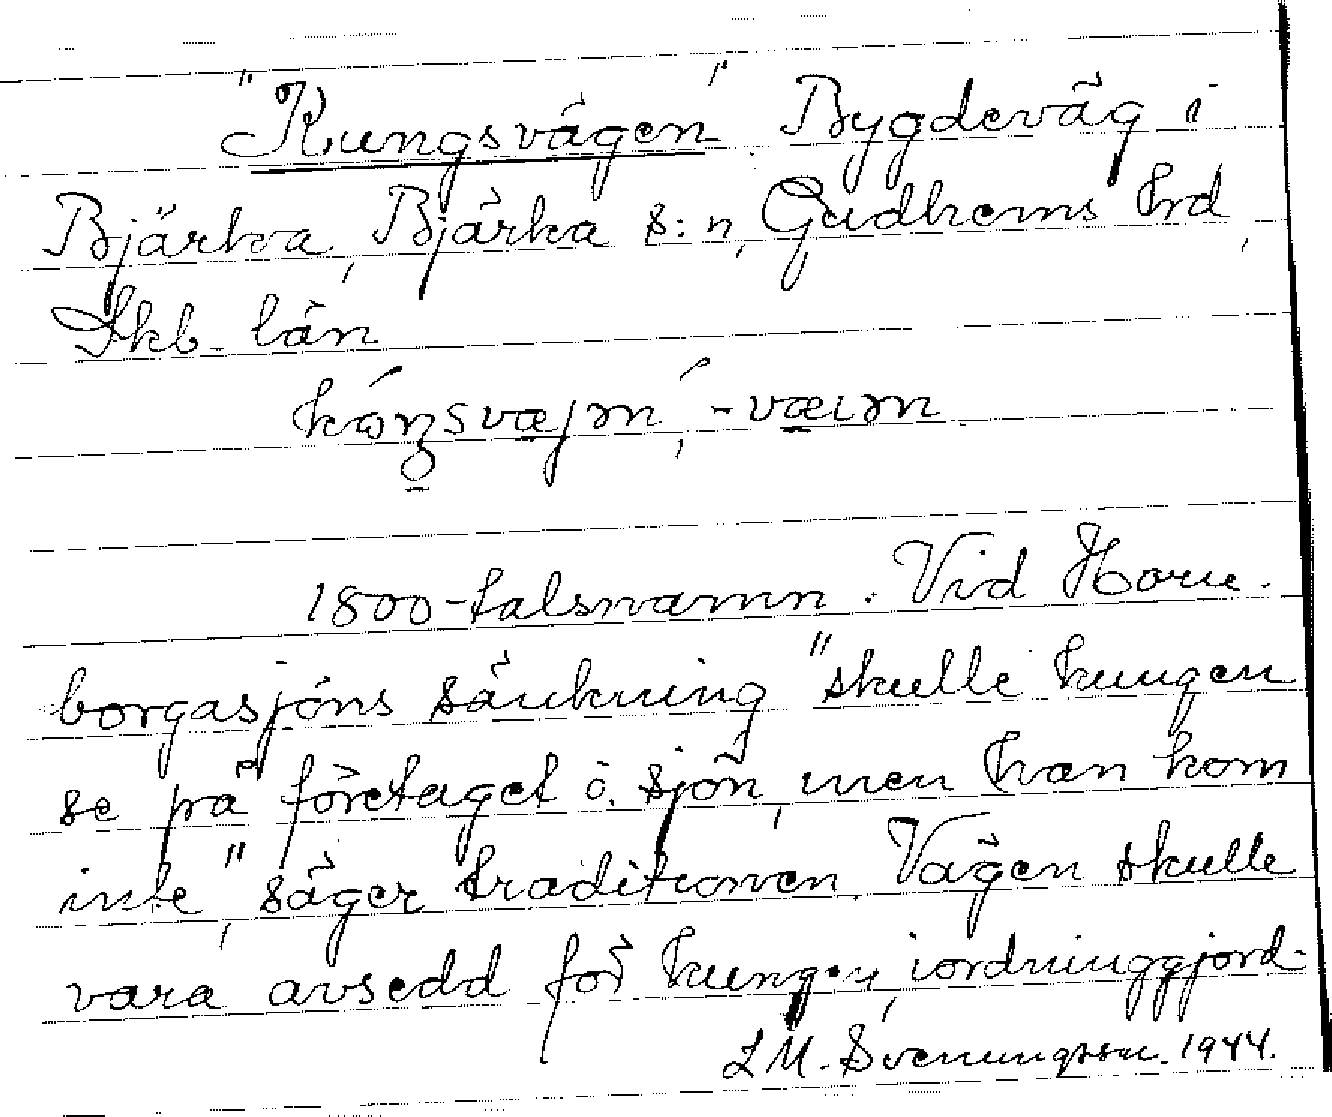 "Kungsvägen" Bygdeväg i
Bjärka, Bjärka s:n, Gudhems hrd,
Skb. län
1800-talsnamn. Vid Horn-
borgasjöns sänkning "skulle kungen
se på företaget o. sjön, men han kom
inte", säger traditionen. Vägen skulle
vara avsedd för kungen, iordninggjord-
L M. Svenungsson. 1944.